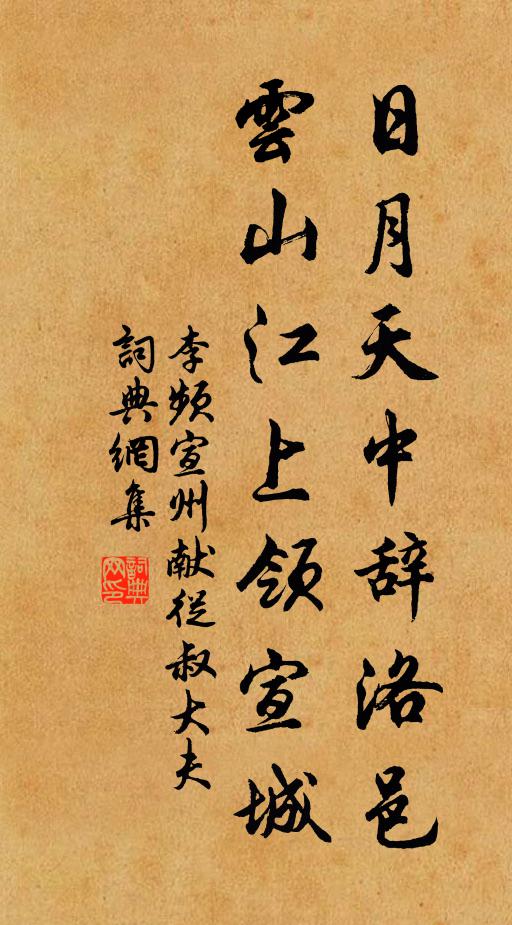 日月天中辞洛邑
雲山江上領宣城
李频宣州献從叔大夫
詞典網集
詞典
网印